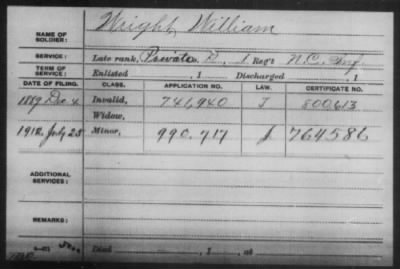 NAME OF SOLDIER: Wright, William
SERVICE: Late rank, Private Co. D, 1 Reg't N.C. Inf.
TERM OF SERVICE: Enlisted , 1 Discharged , 1
DATE OF FILING. CLASS. APPLICATION NO. LAW. CERTIFICATE NO.
1889 Dec 4 Invalid, 746940 J 500613
Widow,
1912 July 23 Minor, 990.717 J 764586
ADDITIONAL SERVICES:
REMARKS:
Died , 1 , at